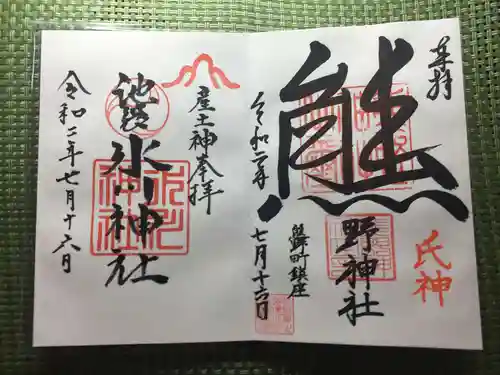 奉拝
熊
野神社
氏神
鎮座
令和二年
七月十六日
産土神奉拝
氷川神社
令和二年七月十六日